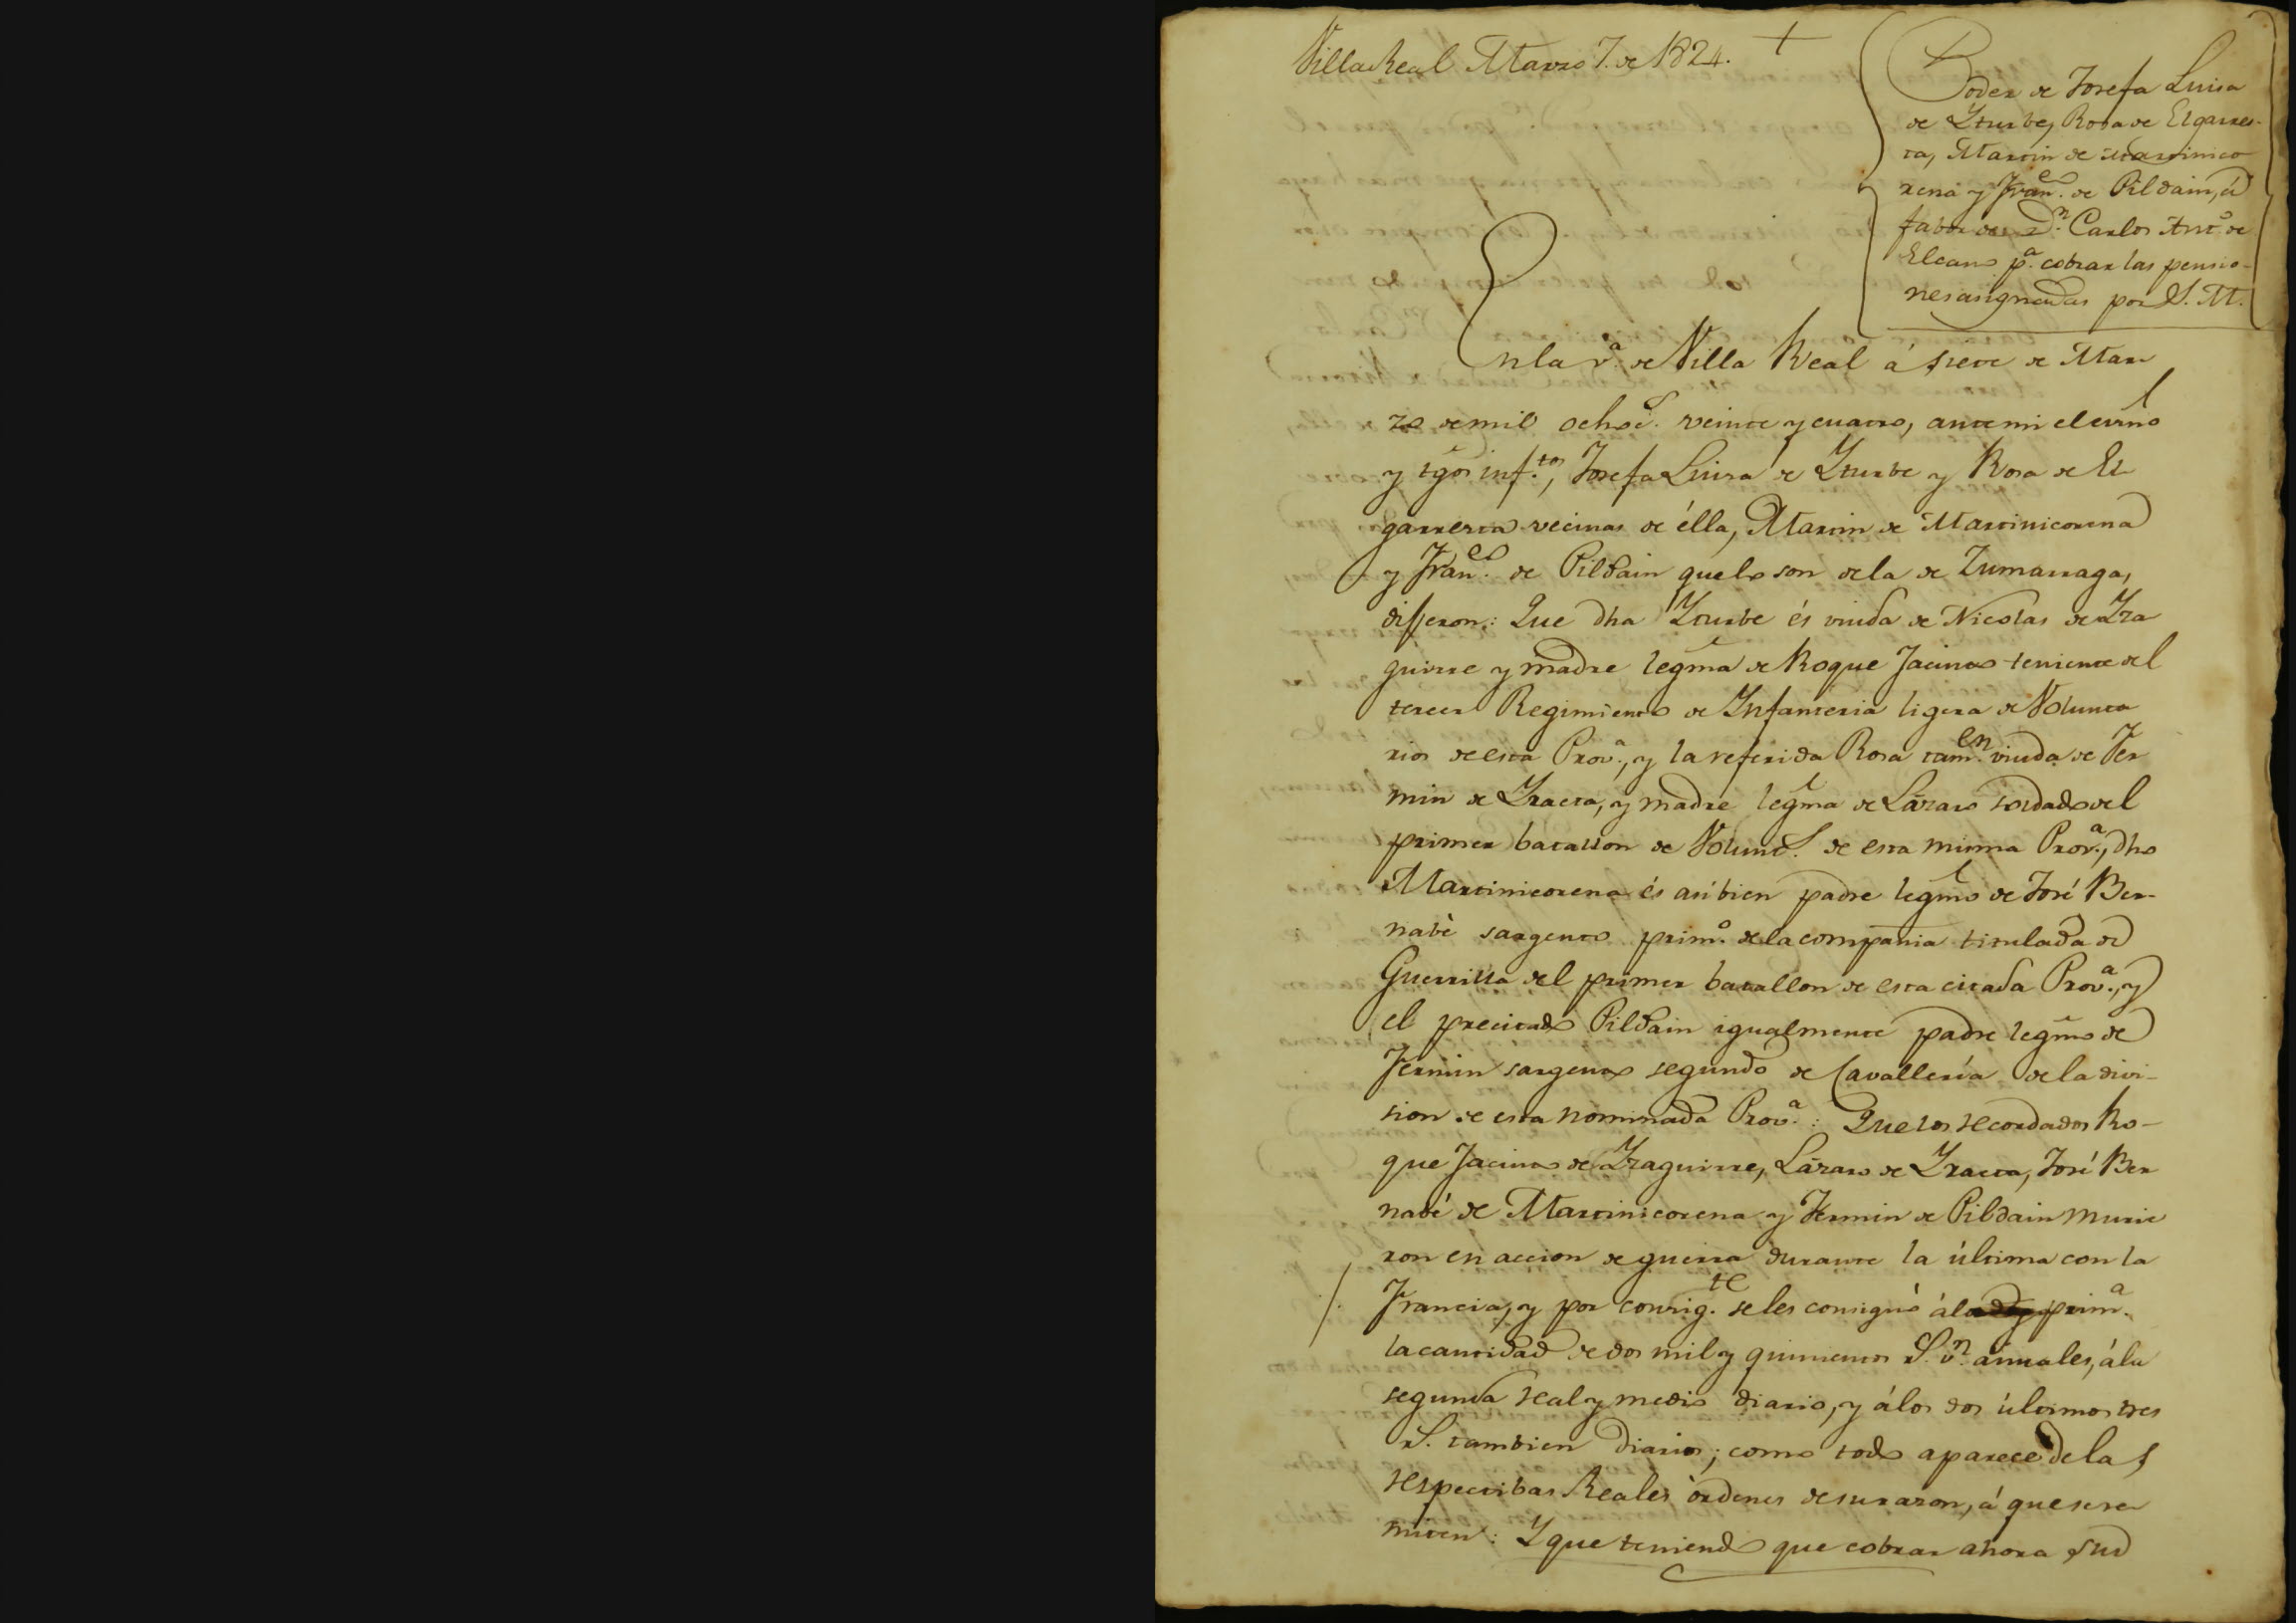 Villa Real Marzo 7. de 1824. +
Poder de Josefa Luisa
de Yturbe, Rosa de Elgarres-
ta, Martin de Martinico
rena y Fran.co de Pildain, á
fabor de D.n Carlos Ant.o de
Elcano p.a cobrar las pensio-
nes asignadas por S. M.
En la v.a de Villa Real á siete de Mar
zo de mil ochoc.s veinte y cuatro, ante mi el escrno
y tgos inf.tos, Josefa Luisa de Yturbe y Rosa de El
garresta vecinas de élla, Martin de Martinicorena
y Fran.co de Pildain que lo son de la de Zumarraga,
disseron: Que dha Yturbe és viuda de Nicolas de Yza
guirre y madre legma de Roque Jacinto teniente del
tercer Regimiento de Ynfanteria ligera de Volunta
rios de esta Prov.a, y la referida Rosa tam.en viuda de Fer
min de Yraeta, y madre legma de Lázaro soldado del
primer batallon de Volunt.s de esta misma Prov.a, dho
Martinicorena és asibien padre legmo de José Ber-
nabè sargento prim.o de la compañia titulada de
Guerrilla del primer batallon de esta citada Prov.a, y
el precitado Pildain igualmente padre legmo de
Fermin sargento segundo de Cavallería de la divi-
sion de esta nominada Prov.a: Que los recordados Ro-
que Jacinto de Yzaguirre, Lázaro de Yraeta, José Ber
nabé de Martinicorena y Fermin de Pildain murie
ron en accion de guerra durante la última con la
Francia, y por consig.te se les consignó á la prim.a
la cantidad de dos mil y quinientos r.s v.n ánuales, á la
segunda real y medio diario, y á los dos últimos tres
r.s tambien diarios; como todo aparece de las
respectibas Reales órdenes de su razon, á que se re
miten: Y que teniendo que cobrar ahora sus